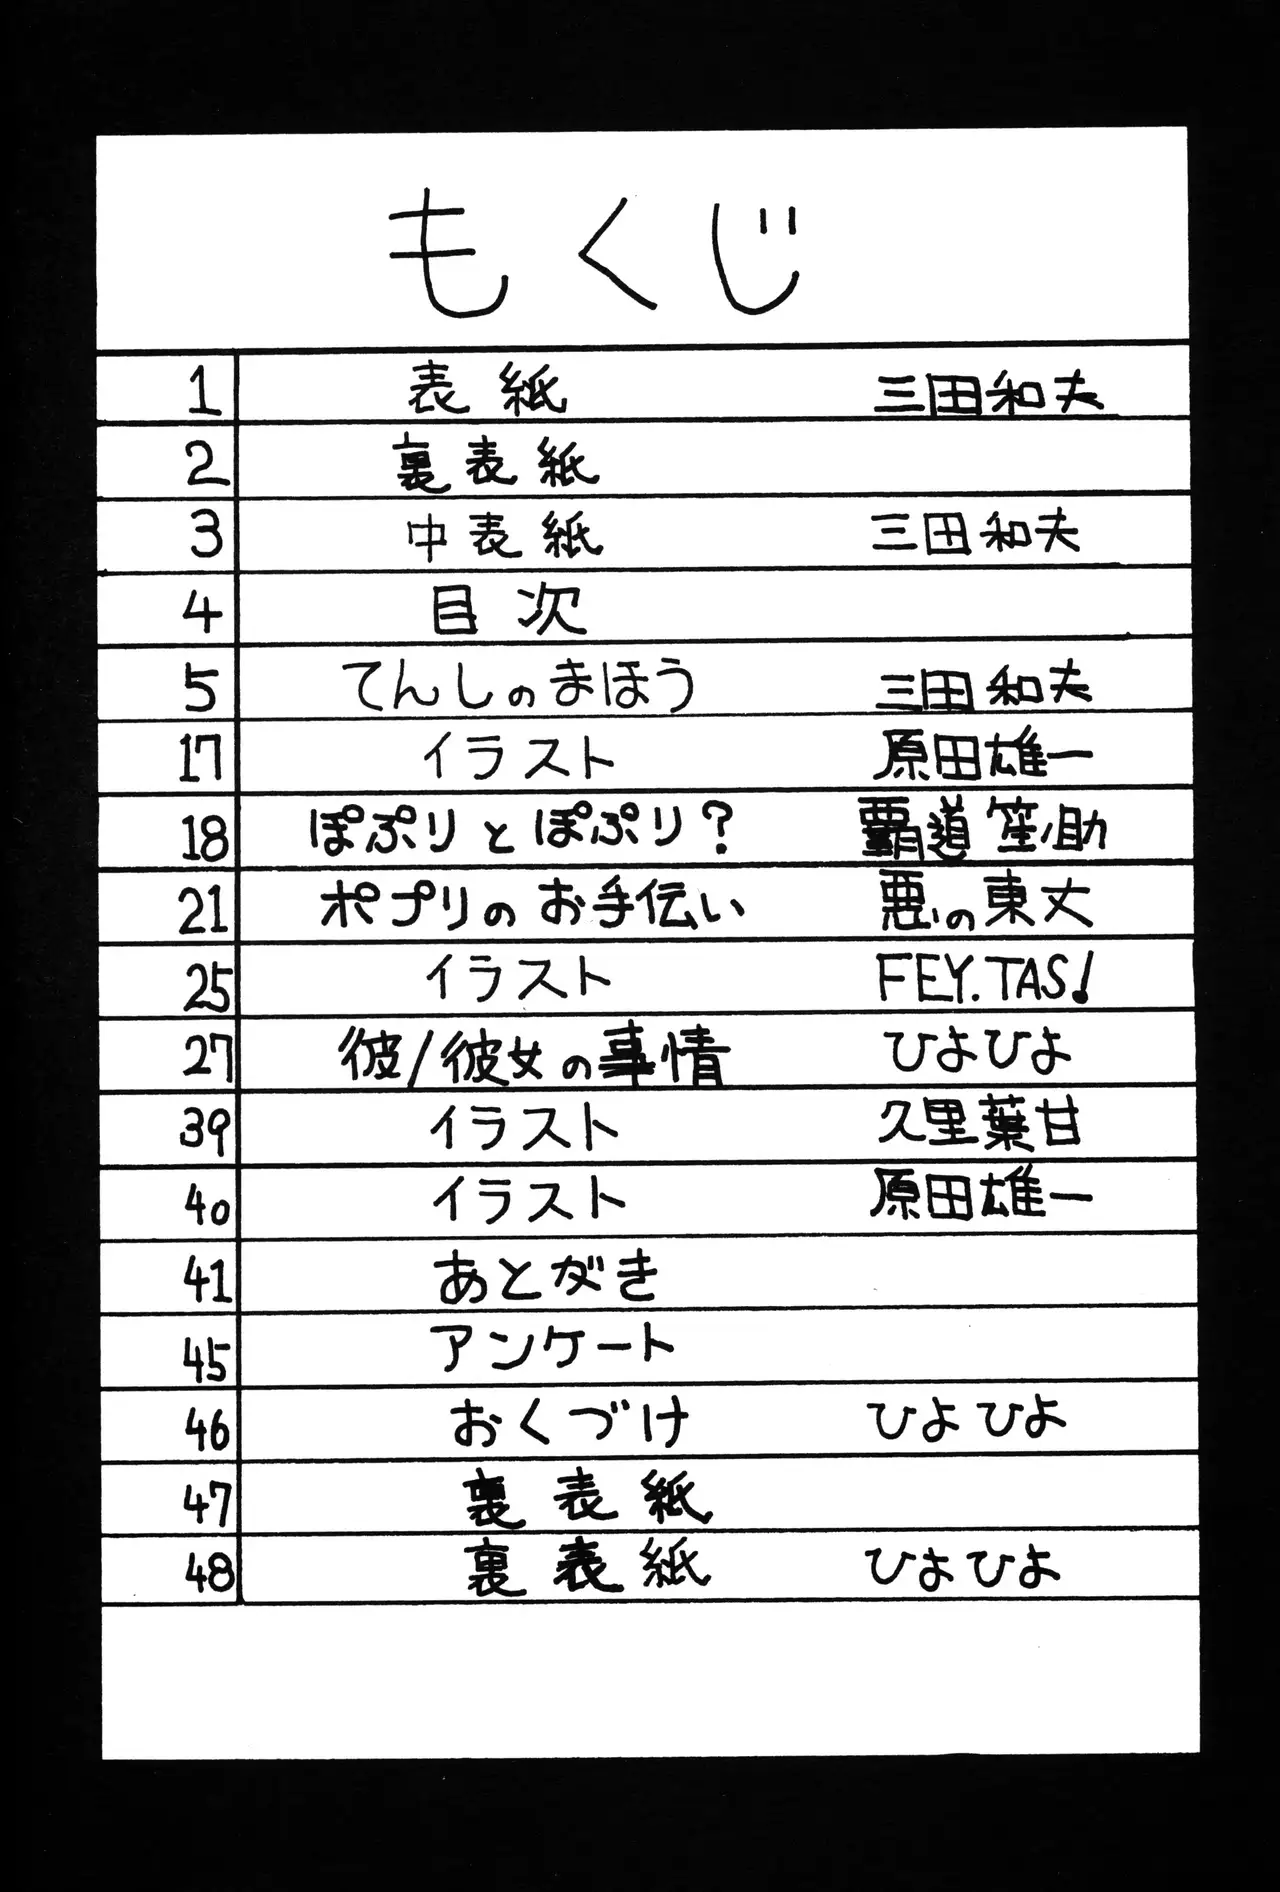 もくじ
1 表紙 三田和夫
2 裏表紙
3 中表紙 三田和夫
4 目次
5 てんしのまほう 三田和夫
17 イラスト 原田雄一
18 ぽぷりとぽぷり? 覇道 笙ノ助
21 ポプリのお手伝い 悪いの東丈
25 イラスト FEY.TAS!
27 彼/彼女の事情 ひよひよ
39 イラスト 久里葉甘
40 イラスト 原田雄一
41 あとがき
45 アンケート
46 おくづけ ひよひよ
47 裏表紙
48 裏表紙 ひよひよ